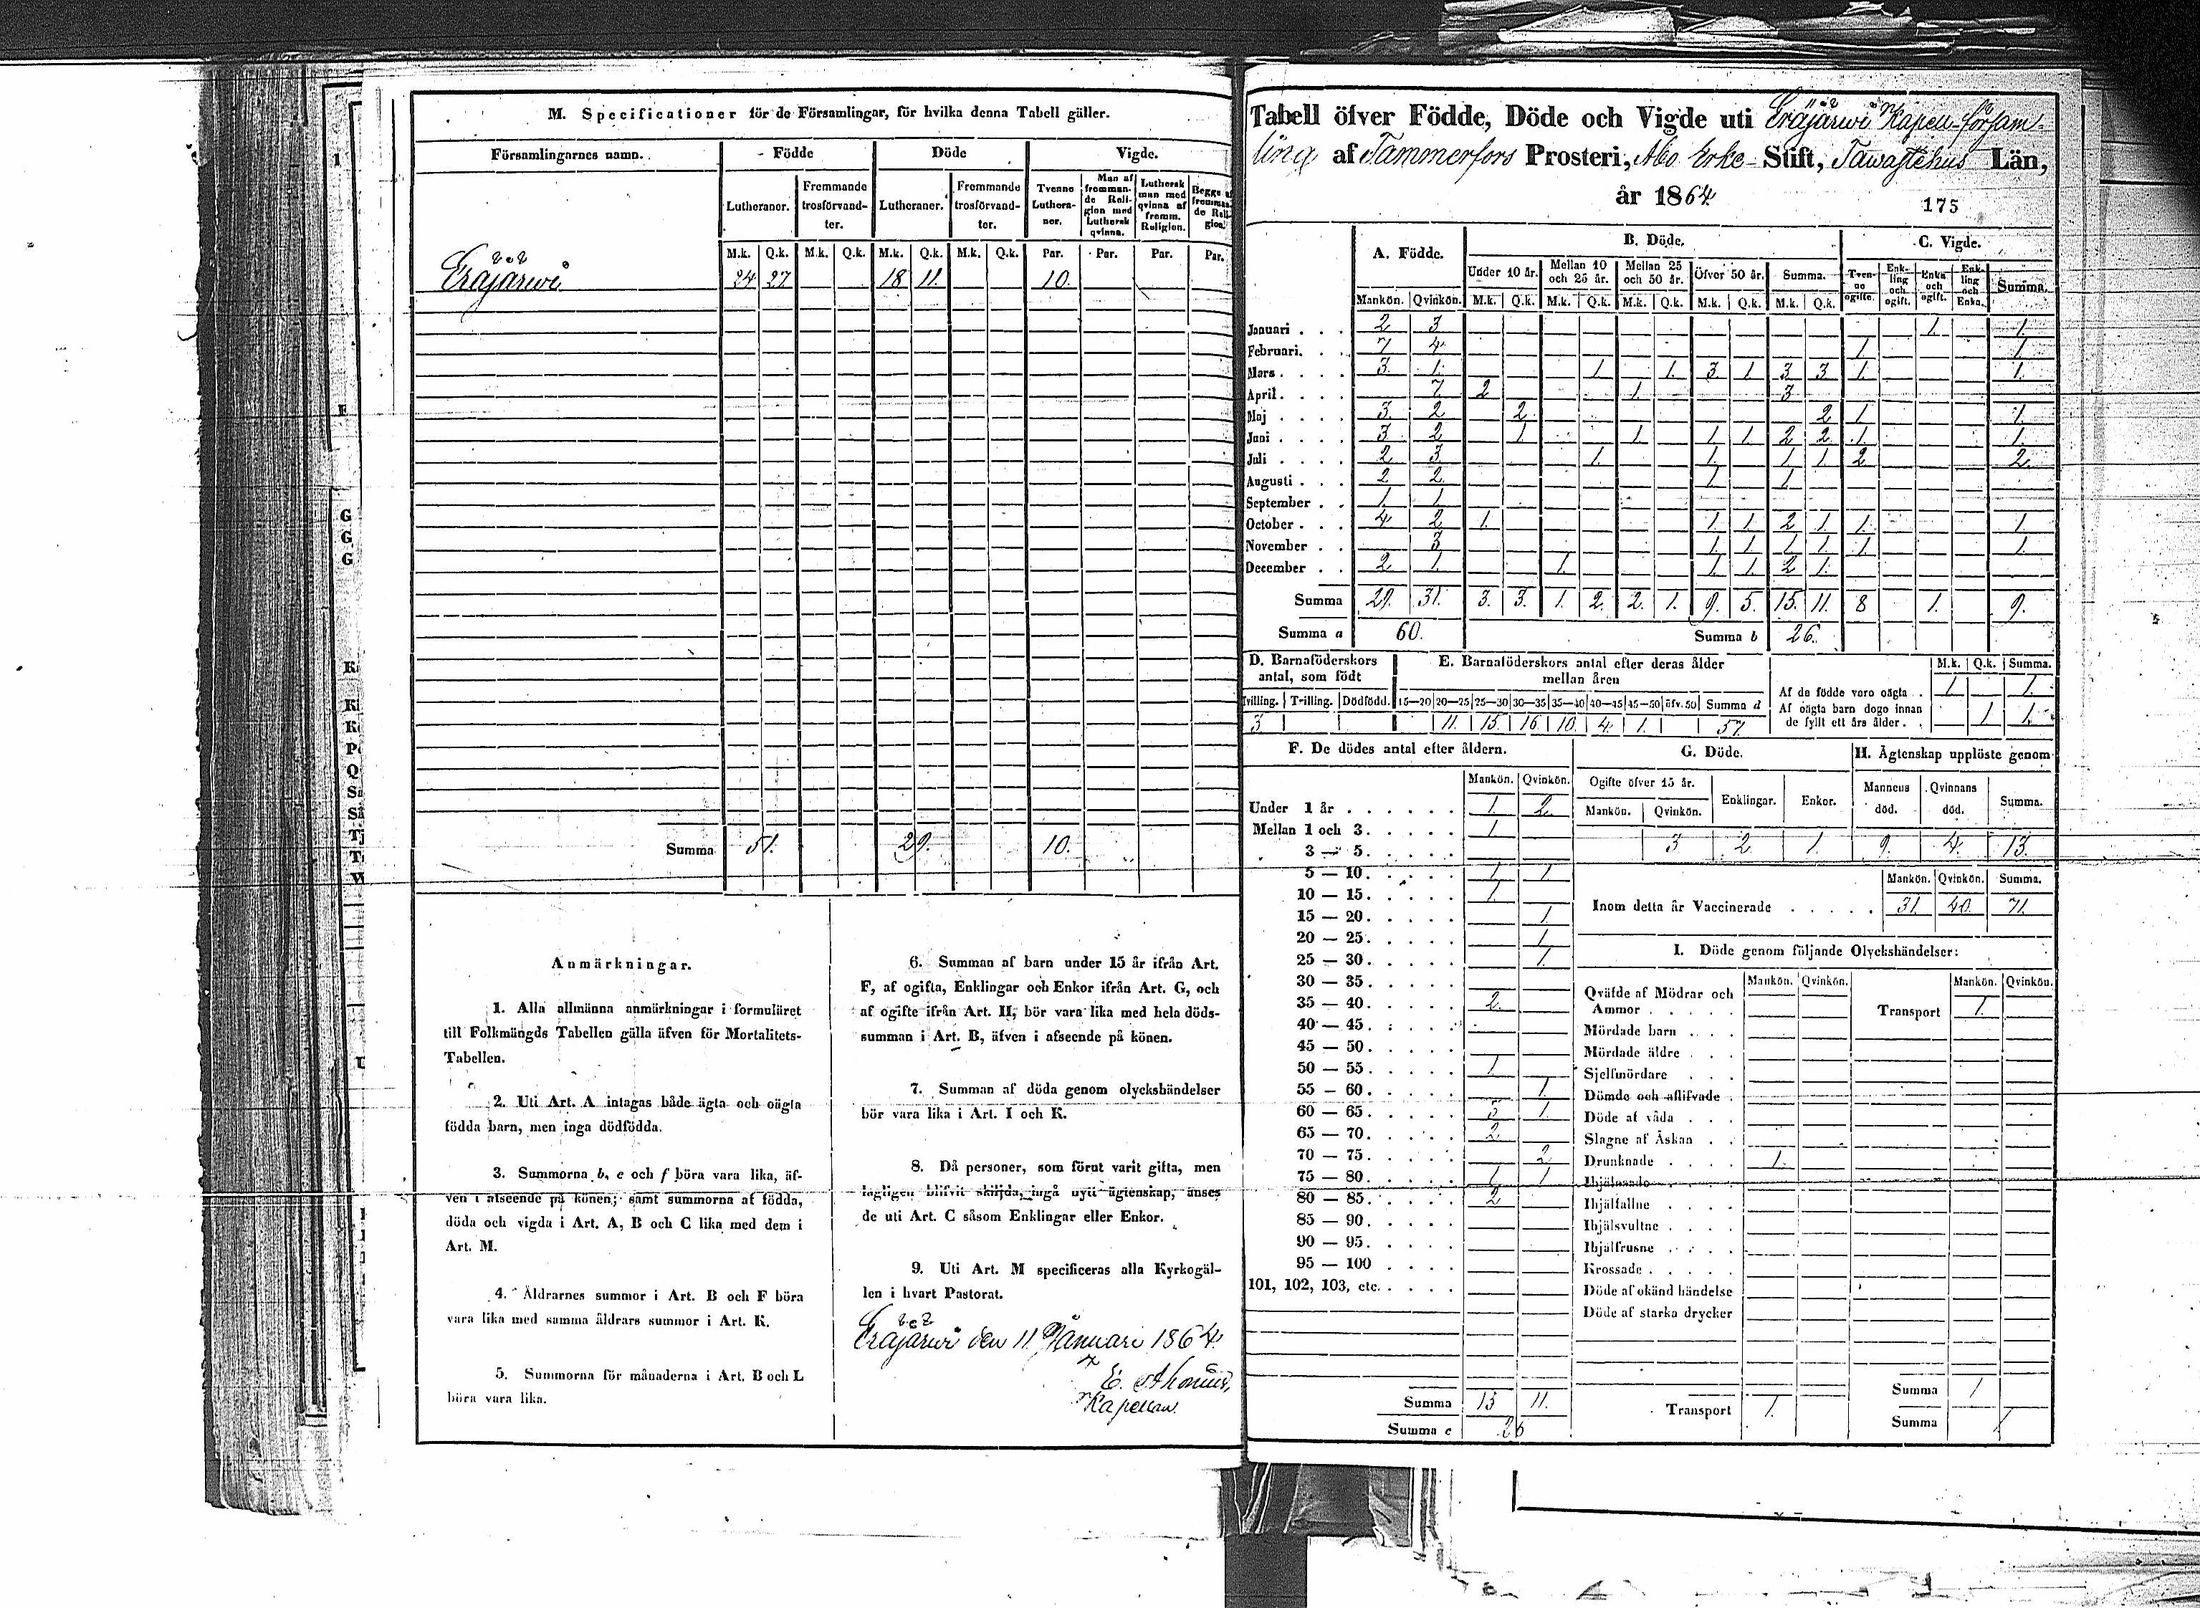 M. Specificationer för de Församlingar, för hvilka denna Tabell gäller.
Församlingarnes namn. Födde Döde Vigde.
Lutheraner. Fremmande trosförvand-ter. Lutheraner. Fremmande trosförvand-ter. Tvenne Luthera-ner. Man af fremman-de Reli-gion med Luthersk qvinna. Luthersk man med qvinna af fremm. Religion. Begge af fremman-de Reli-gion.
M.k. Q.k. M.k. Q.k. M.k. Q.k. M.k. Q.k. Par. Par. Par. Par.
Eräjärwi 24 27 18 11. 10.
Summa 51. 29. 10.
Anmärkningar.
1. Alla allmänna anmärkningar i formuläret
till Folkmängds Tabellen gälla äfven för Mortalitets-
Tabellen.
2. Uti Art. A intagas både ägta och oägta
födda barn, men inga dödfödda.
3. Summorna b, c och f böra vara lika, äf-
ven i afseende på könen; samt summorna af födda,
döda och vigda i Art. A, B och C lika med dem i
Art. M.
4. Åldrarnes summor i Art. B och F böra
vara lika med samma åldrars summor i Art. K.
5. Summorna för månaderna i Art. B och L
böra vara lika.
6. Summan af barn under 15 år ifrån Art.
F, af ogifta, Enklingar och Enkor ifrån Art. G, och
af ogifte ifrån Art. H, bör vara lika med hela döds-
summan i Art. B, äfven i afseende på könen.
7. Summan af döda genom olyckshändelser
bör vara lika i Art. I och K.
8. Då personer, som förut varit gifta, men
lagligen blifvit skiljda, ingå nytt ägtenskap, anses
de uti Art. C såsom Enklingar eller Enkor.
9. Uti Art. M specificeras alla Kyrkogäl-
len i hvart Pastorat.
Eräjärwi den 11 Januari 1864.
E.
Kapellan.
Tabell öfver Födde, Döde och Vigde uti Eräjärwi Kapell-försam-
ling af Tammerfors Prosteri, Åbo Erke-Stift, Tawastehus Län,
år 1864
175
A. Födde. B. Döde. C. Vigde.
Under 10 år. Mellan 10 och 25 år. Mellan 25 och 50 år. Öfver 50 år. Summa. Tven-ne ogifte. Enk-ling och ogift. Enka och ogift. Enk-ling och Enka. Summa.
Mankön. Qvinkön. M.k. Q.k. M.k. Q.k. M.k. Q.k. M.k. Q.k. M.k. Q.k.
Januari . . . 2 3 1. 1.
Februari. . . 7 4. 1. 1.
Mars . . . . 3. 1. 1 1. 3. 1 3 3 1. 1.
April . . . . 7 2 1. 3.
Maj . . . . 3. 2 2. 2 1. 1.
Juni . . . . 3. 2 1. 1 1 1 2 2. 1. 1.
Juli . . . . 2 3 1. 1. 1 1 2 2.
Augusti . . . 2 2. 1 1.
September . . 1. 1.
October . . . 4 2 1. 1 1 2 1. 1. 1
November . . 3. 1. 1 1 1. 1. 1.
December . . 2 1. 1. 1. 1. 2 1.
Summa 29. 31. 3. 3. 1. 2. 2. 1. 9. 5. 15. 11. 8 1. 9.
Summa a 60. Summa b 26.
D. Barnaföderskors antal, som födt
Tvilling. Trilling. Dödfödd.
3
E. Barnaföderskors antal efter deras ålder mellan åren
15—20 20—25 25—30 30—35 35—40 40—45 45—50 öfv. 50 Summa d
11. 15. 16. 10. 4. 1. 57.
M.k. Q.k. Summa.
Af de födde voro oägta . 1 1.
Af oägta barn dogo innan
de fyllt ett års ålder . . 1 1.
F. De dödes antal efter åldern.
Mankön. Qvinkön.
Under 1 år . . . . . . 1. 2.
Mellan 1 och 3. . . . . 1
3 — 5. . . . .
5 — 10. . . . . 1 1
10 — 15. . . . . 1.
15 — 20. . . . . 1.
20 — 25. . . . . 1
25 — 30. . . . . 1.
30 — 35. . . . .
35 — 40. . . . . 2.
40 — 45. . . . .
45 — 50. . . . .
50 — 55. . . . . 1.
55 — 60. . . . . 1.
60 — 65. . . . . 3 1.
65 — 70. . . . . 2.
70 — 75. . . . . 2
75 — 80. . . . . 1 1
80 — 85. . . . . 2
85 — 90. . . . .
90 — 95. . . . .
95 — 100 . . . .
101, 102, 103, etc. . . . .
Summa 15 11.
Summa c 26
G. Döde.
Ogifte öfver 15 år. Enklingar. Enkor.
Mankön. Qvinkön.
3 2. 1.
H. Ägtenskap upplöste genom
Mannens död. Qvinnans död. Summa.
9. 4. 13.
Mankön. Qvinkön. Summa.
Inom detta år Vaccinerade . . . . . 31. 40. 71.
I. Döde genom följande Olyckshändelser:
Mankön. Qvinkön. Mankön. Qvinkön.
Qväfde af Mödrar och
Ammor . . . . . Transport 1.
Mördade barn . . .
Mördade äldre . . .
Sjelfmördare . . .
Dömde och aflifvade .
Döde af våda . . .
Slagne af Åskan . .
Drunknade . . . . 1.
Ihjälfallne . . . .
Ihjälsvultne . . . .
Ihjälfrusne . . . .
Krossade . . . . .
Döde af okänd händelse
Döde af starka drycker
Summa 1
Transport 1. Summa 1